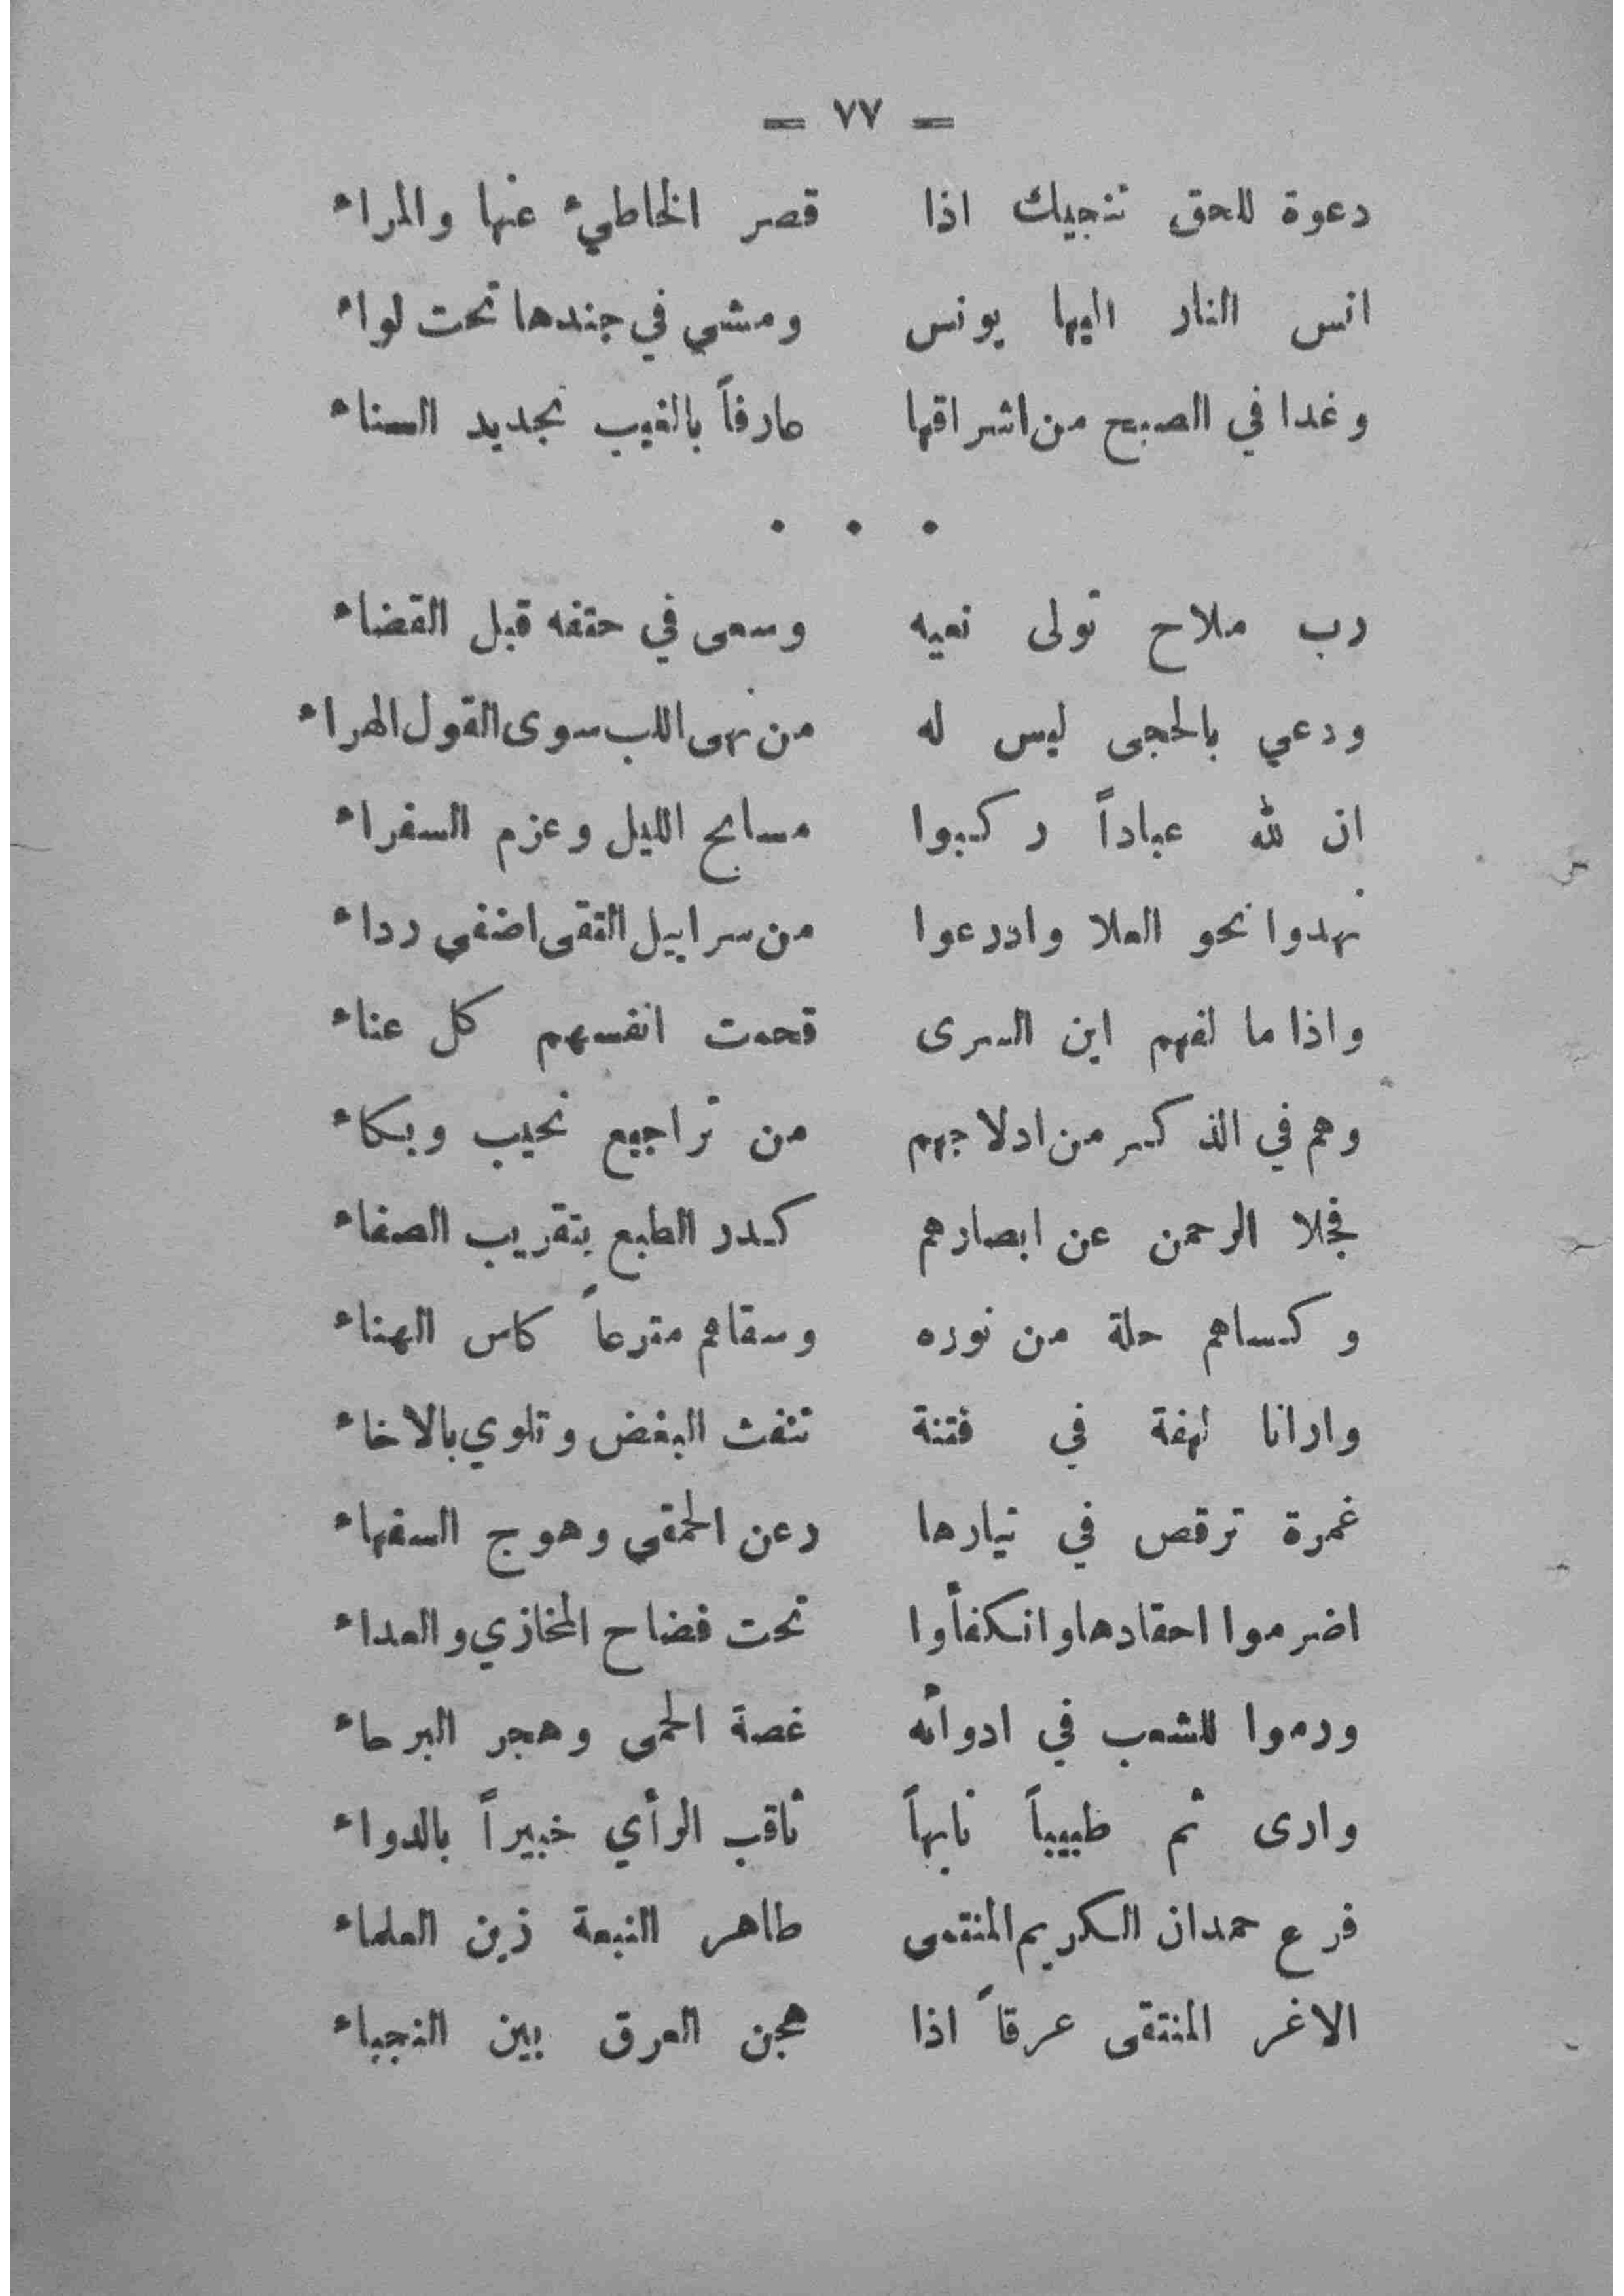 — ٧٧ —
دعوة للحق تنجيك اذا قصر الخاطيء عنها والمراء
انس النار اليها يونس ومشى في جندها تحت لواء
وغدا في الصبح من اشراقها عارفاً بالغيب نجديد السناء
• • •
رب ملاح تولى نعيه وسعى في حتفه قبل القضاء
ودعي بالحجى ليس له من نهى اللب سوى القول الهراء
ان لله عباداً ركبوا مسابح الليل وعزم السفراء
نهدوا نحو العلا وادرعوا من سرابيل التقى اضفى رداء
واذا ما لفهم اين السرى قحمت انفسهم كل عناء
وهم في الذكر من ادلاجهم من تراجيع نحيب وبكاء
فجلا الرحمن عن ابصارهم كدر الطبع بتقريب الصفاء
وكساهم حلة من نوره وسقاهم مترعاً كاس الهناء
وارانا لهفة في فتنة تنفث البغض وتلوي بالاخاء
غمرة ترقص في تيارها رعن الحمقى وهوج السفهاء
اضرموا احقادها وانكفأوا تحت فضاح المخازي والعداء
ورموا للشعب في ادوائه غصة الحمى وهجر البرحاء
وارى ثم طبيباً نابهاً ثاقب الرأي خبيراً بالدواء
فرع حمدان الكريم المنتمى طاهر النبعة زين العلماء
الاغر المنتقى عرقاً اذا هجن العرق بين النجباء